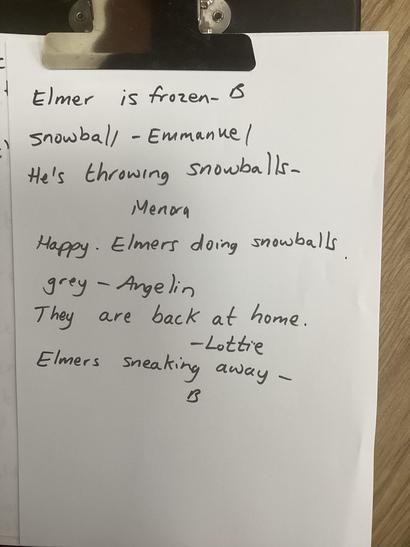 Elmer is frozen- B
snowball - Emmanuel
He's throwing snowballs-
Menora
Happy. Elmers doing snowballs.
grey - Angelin
They are back at home.
-Lottie
Elmers sneaking away -
B